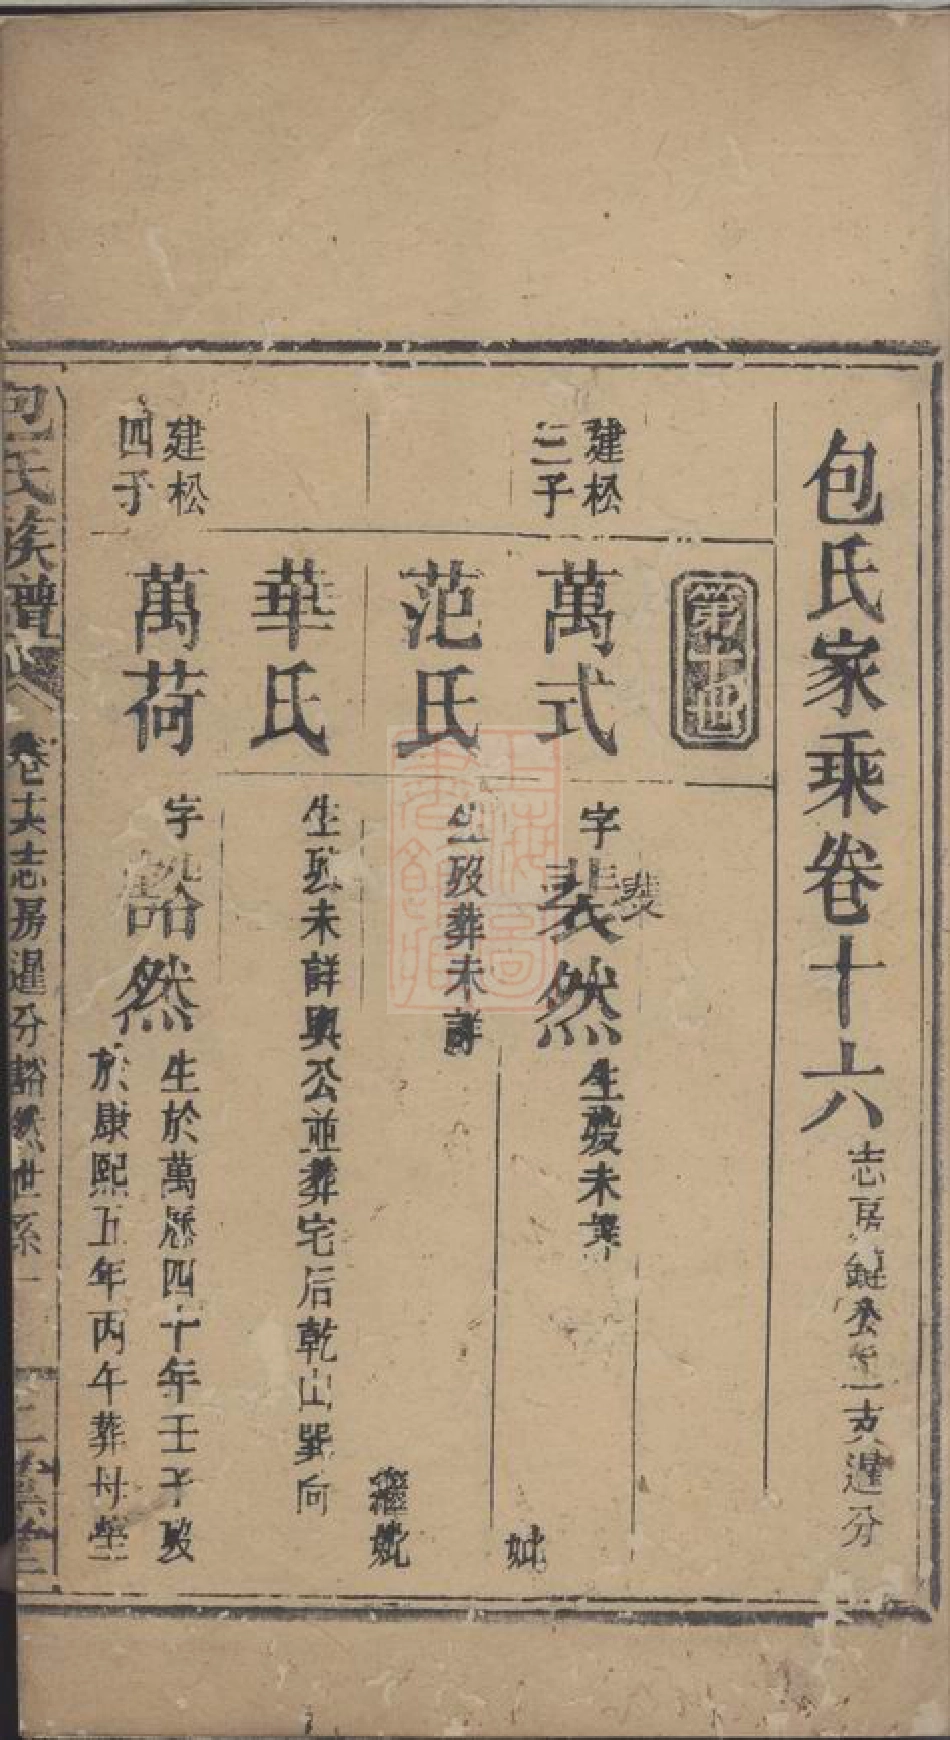 包氏家乘卷十六 志房 公 一支 暹分
世
建松三子
萬式
字裴然 生歿未詳
妣
范氏
生歿葬未詳
繼妣
華氏
生歿未詳與公並葬宅后乾山巽向
建松四子
萬荷
字谿然 生於萬厯四十年壬子歿
於康熙五年丙午葬母塋
包氏族譜 卷十六志房暹分谿然世系一